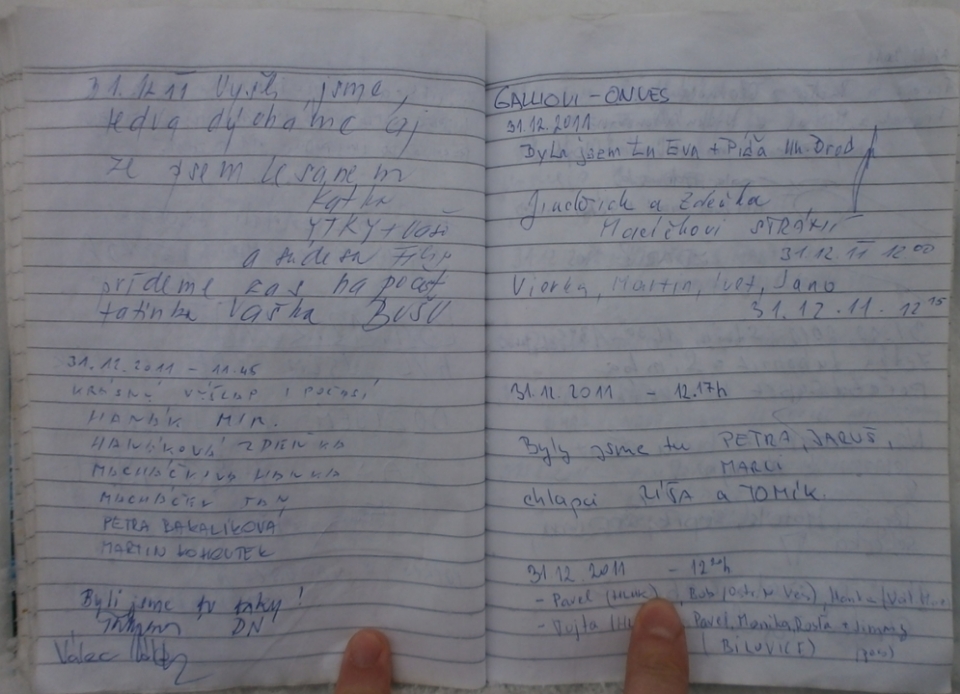 31.12.11 Vyšli jsme,
ledva dýcháme aj
že jsem
Katka
YTKY + Vaši
a
prídeme zas na počest
tatínka Vaška BUŠU
31.12.2011 - 11.45
KRÁSNÝ VÝŠLAP I POČASÍ
HANÁK MIR.
HANÁKOVÁ ZDEŇKA
MACHÁČKOVÁ HANKA
MACHÁČEK JAN
PETRA BAKALÍKOVÁ
MARTIN KOHOUTEK
Byli jsme tu taky!
DN
GALLIOVI - ONVES
31.12.2011
Byla jsem tu EVA + Píďa Uh. Brod
Jindřich a Zdeňka
STRÁNÍ
31.12.11 12 00
Vierka, Martin, Ivet, Jano
31.12.11. 12 15
31.12.2011 - 12.17h
Byly jsme tu PETRA, JARUŠ,
MARCI
chlapci RÍŠA a TOMÍK.
31.12.2011 -
- Pavel (HLUK), Bob
- Vojta Pavel, Monika, Rosťa + Jimmy
(BÍLOVICE)